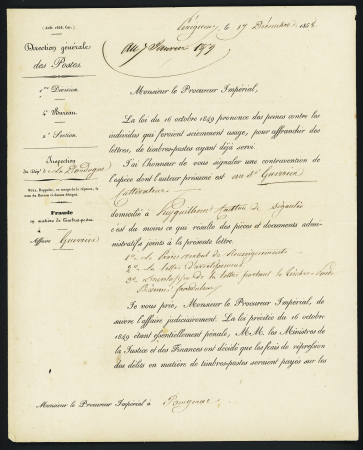 Périgueux, le 17 Décembre 1858
Direction générale
des Postes
au 7 Janvier 1859
1ère Division.
4e Bureau.
2e Section.
Inspection
du Dépt de la Dordogne
NOTA. Rappeler, en marge de la réponse, le
nom du Bureau ci-dessus désigné.
Fraude
en matière de timbres-postes
Affaire Guerrier
Monsieur le Procureur Impérial,
La loi du 16 octobre 1849 prononce des peines contre les
individus qui feraient sciemment usage, pour affranchir des
lettres, de timbres-postes ayant déjà servi.
J'ai l'honneur de vous signaler une contravention de
l'espèce dont l'auteur présumé est un Sr Guerrier
domicilié à Puyguilhem canton de Sigoulès
c'est du moins ce qui résulte des pièces et documents admi-
nistratifs joints à la présente lettre.
1º Le Procès verbal de Renseignements
2º La lettre d'avertissement
3º L'enveloppe de la lettre portant le timbre-poste
Je vous prie, Monsieur le Procureur Impérial, de
suivre l'affaire judiciairement. La loi précitée du 16 octobre
1849 étant essentiellement pénale, M.M. les Ministres de
la Justice et des Finances ont décidé que les frais de répression
des délits en matière de timbres-postes seraient payés sur les
Monsieur le Procureur Impérial à Bergerac